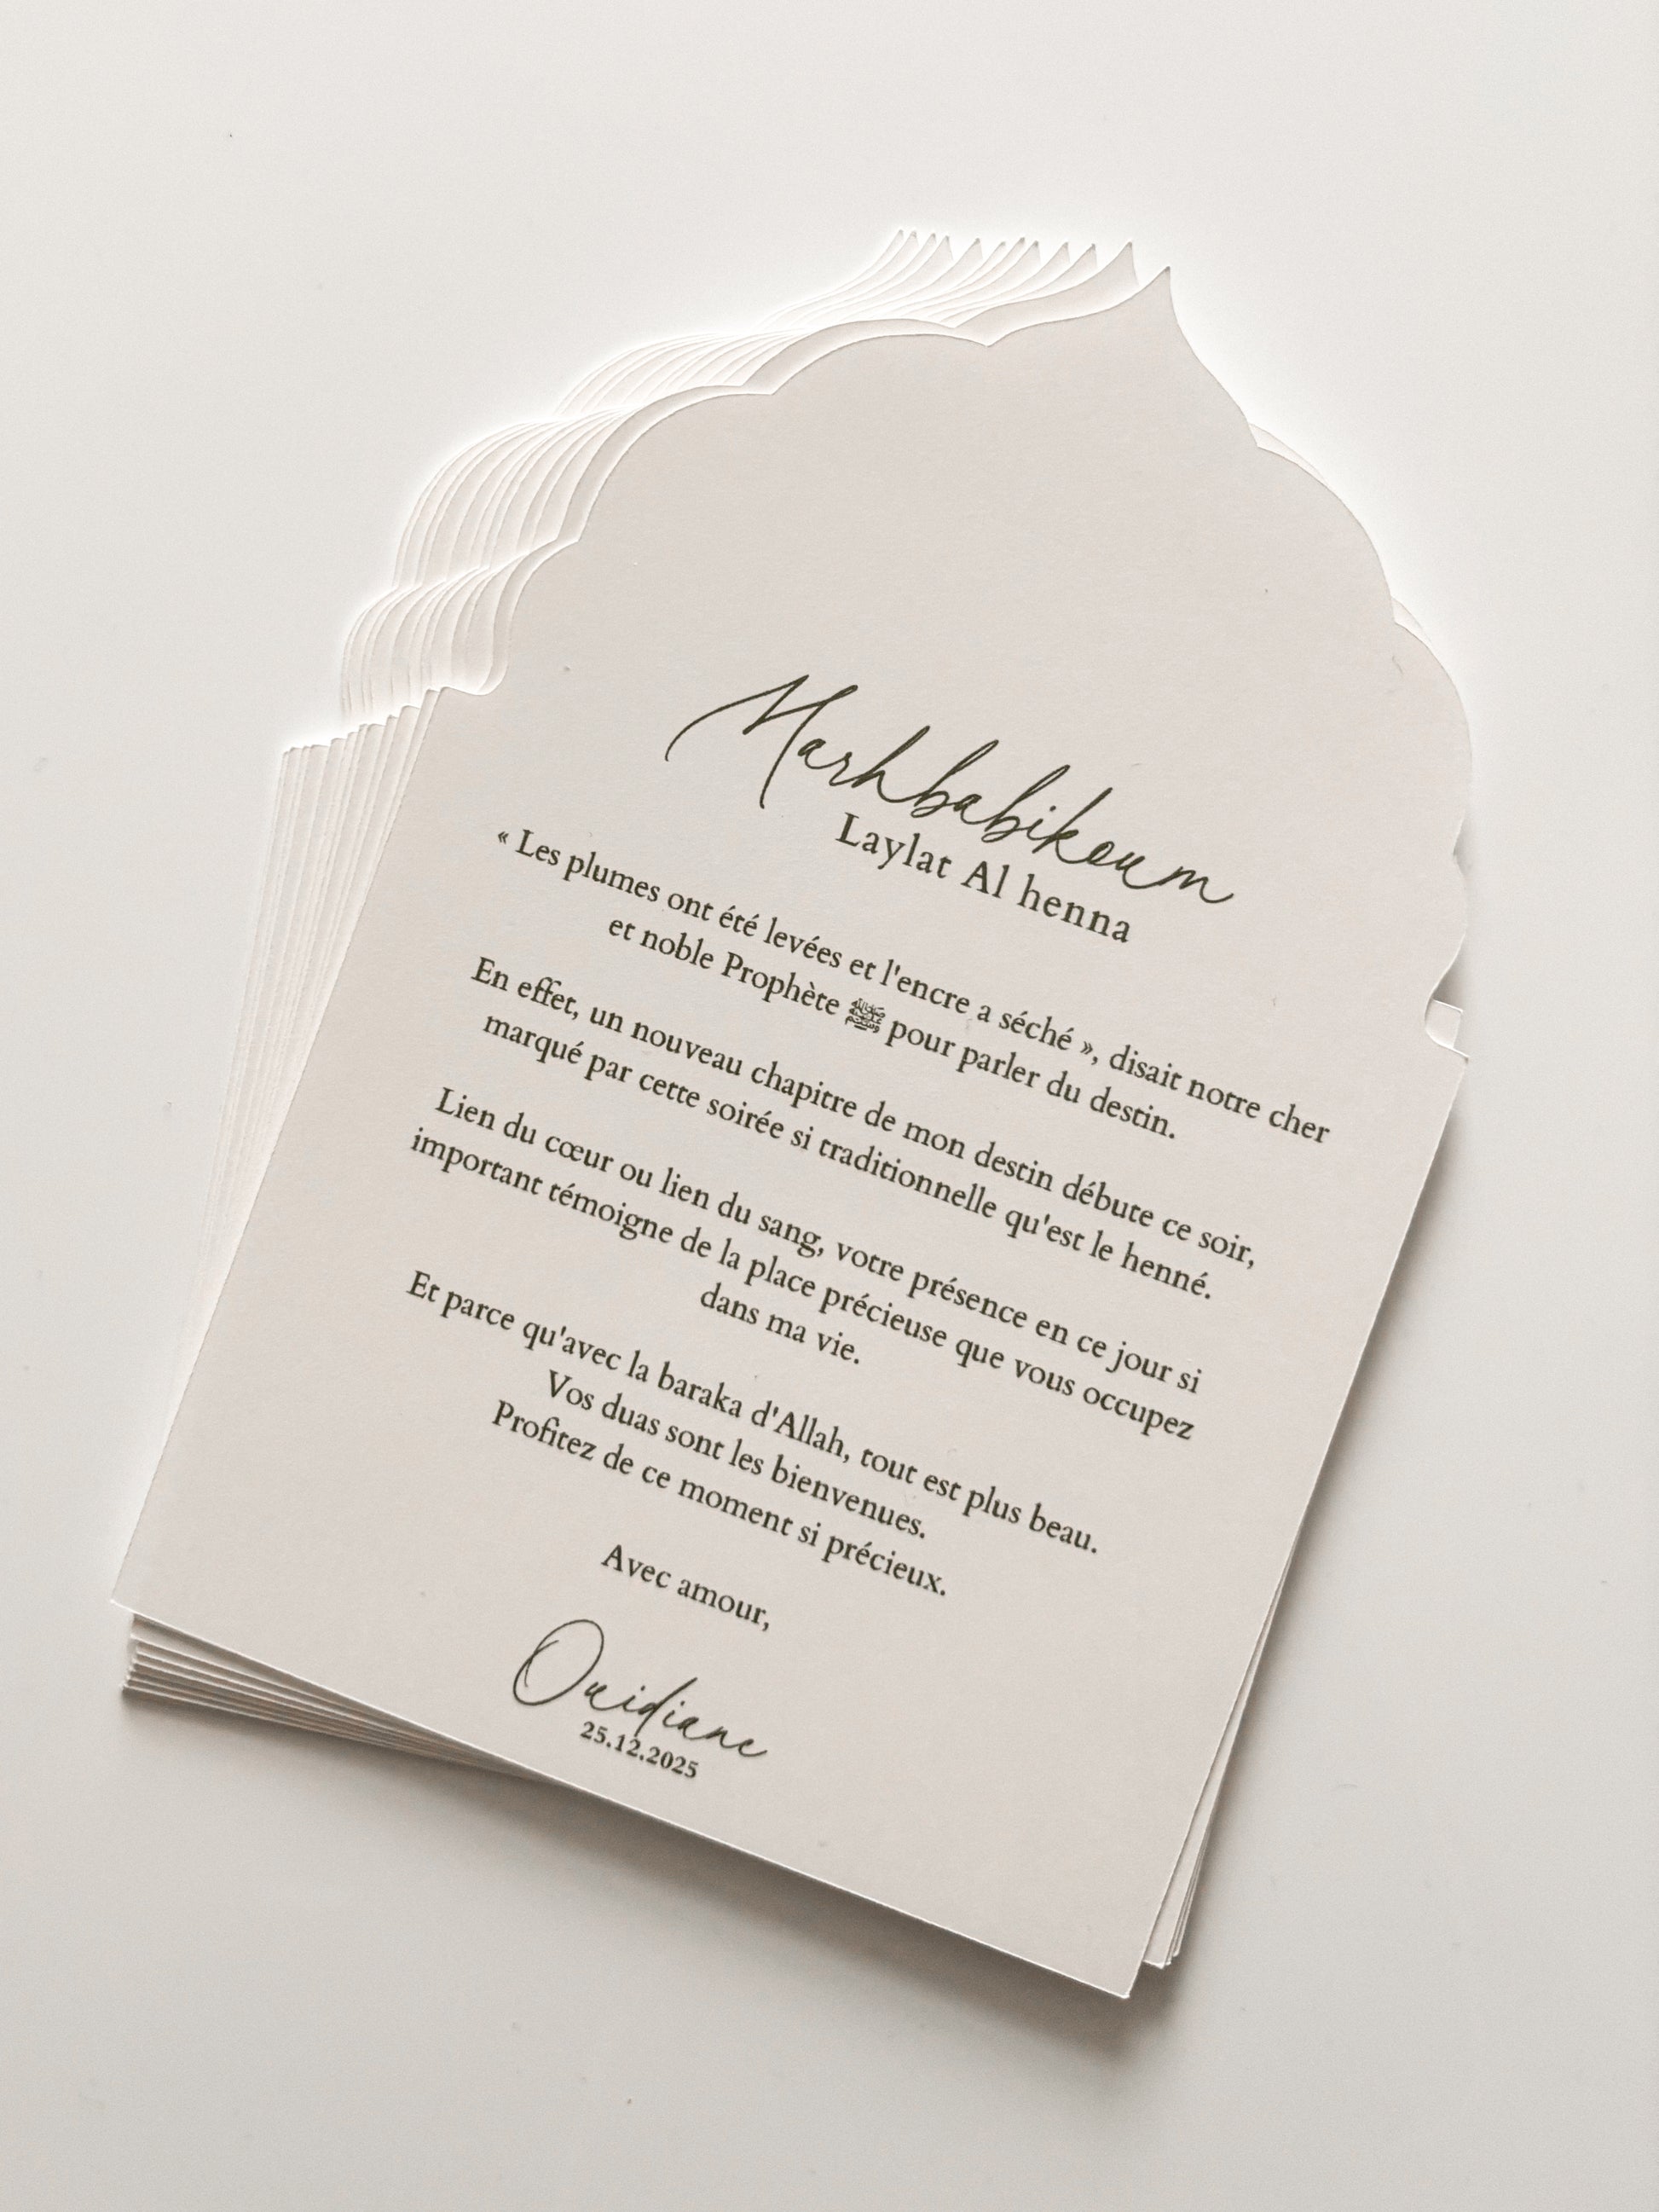 Marhbabikoum
Laylat Al henna
« Les plumes ont été levées et l'encre a séché », disait notre cher
et noble Prophète ﷺ pour parler du destin.
En effet, un nouveau chapitre de mon destin débute ce soir,
marqué par cette soirée si traditionnelle qu'est le henné.
Lien du cœur ou lien du sang, votre présence en ce jour si
important témoigne de la place précieuse que vous occupez
dans ma vie.
Et parce qu'avec la baraka d'Allah, tout est plus beau.
Vos duas sont les bienvenues.
Profitez de ce moment si précieux.
Avec amour,
Ouidiane
25.12.2025